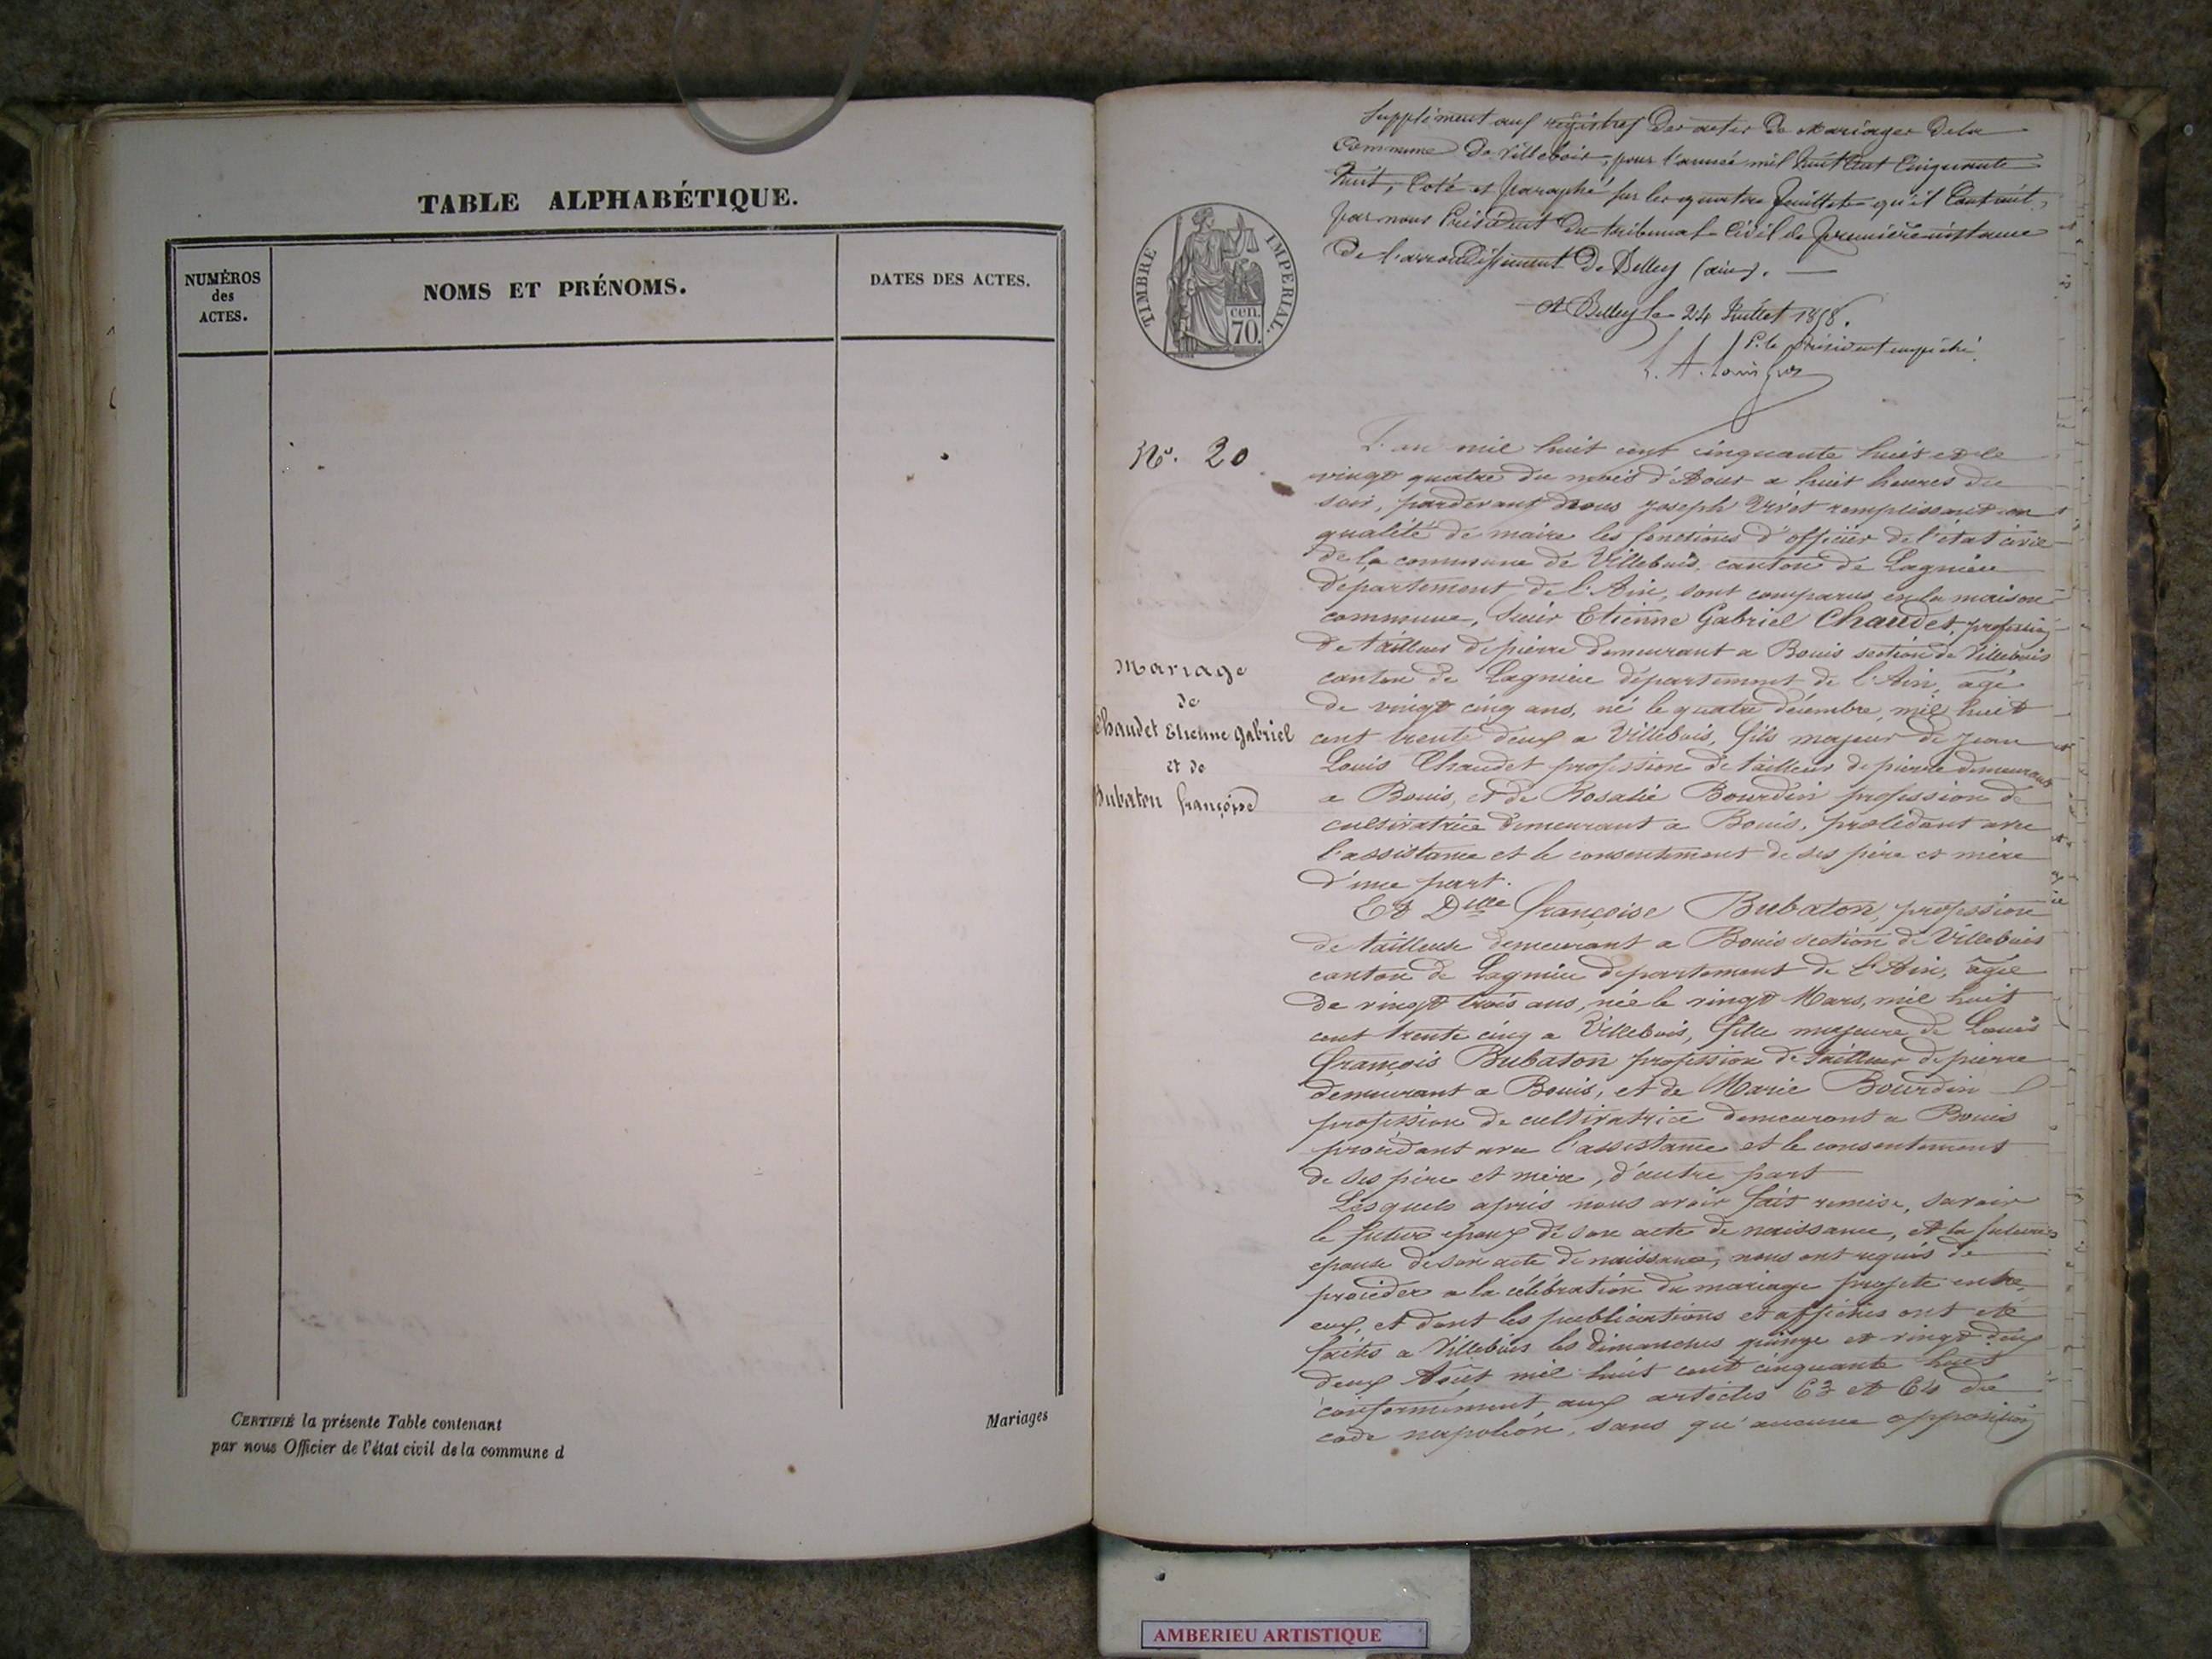 TABLE ALPHABÉTIQUE.
NUMÉROS
des
ACTES.
NOMS ET PRÉNOMS.
DATES DES ACTES.
CERTIFIÉ la présente Table contenant
par nous Officier de l'état civil de la commune d
Mariages
Supplément aux registres des actes de Mariages de la
Commune de Villebois, pour l'année mil huit Cent Cinquante
huit, Coté et paraphé sur les quatre feuillets qu'il Contient,
par nous Président du tribunal Civil de première instance
de l'arrondissement de Belley (ain). —
A Belley le 24 Juillet 1858.
P. le président empêché
TIMBRE IMPERIAL.
cen.
70.
No. 20
Mariage
de
Chaudet Etienne Gabriel
et de
Bubaton françoise
L'an mil huit cent cinquante huit et le
vingt quatre du mois d'Aout a huit heures du
soir, pardevant nous Joseph Vivet remplissant en
qualité de maire les fonctions d'officier de l'état civil
de la commune de Villebois, canton de Lagnieu
département de l'Ain, sont comparus en la maison
commune, Sieur Etienne Gabriel Chaudet, profession
de tailleur de pierre demeurant a Bouis section de Villebois
canton de Lagnieu département de l'Ain, âgé
de vingt cinq ans, né le quatre décembre, mil huit
cent trente deux a Villebois, fils majeur de Jean
Louis Chaudet profession de tailleur de pierre demeurant
a Bouis, et de Rosalie Bourdin profession de
cultivatrice demeurant a Bouis, procédant avec
l'assistance et le consentement de ses père et mère
d'une part.
Et Dlle françoise Bubaton, profession
de tailleuse demeurant a Bouis section de Villebois
canton de Lagnieu département de l'Ain, âgée
de vingt trois ans, née le vingt Mars, mil huit
cent trente cinq a Villebois, fille majeure de Louis
françois Bubaton profession de tailleur de pierre
demeurant a Bouis, et de Marie Bourdin
profession de cultivatrice demeurant a Bouis
procédant avec l'assistance et le consentement
de ses père et mère, d'autre part
Lesquels après nous avoir fait remise, savoir
le futur époux de son acte de naissance, et la future
épouse de son acte de naissance, nous ont requis de
procéder a la célébration du mariage projeté entre
eux, et dont les publications et affiches ont été
faites a Villebois les dimanches quinze et vingt deux
deux Août mil huit cent cinquante huit
conformément aux articles 63 et 64 du
code napoléon, sans qu'aucune opposition
AMBERIEU ARTISTIQUE